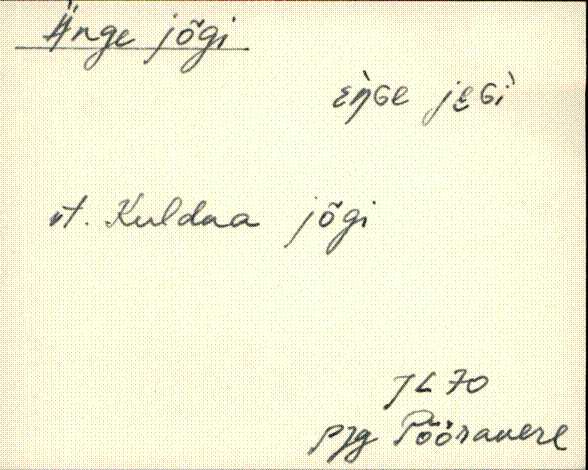 Änge jõgi
èŋɢe je̮ɢì
vt. Kuldna jõgi
JL 70
Pjg Pööravere